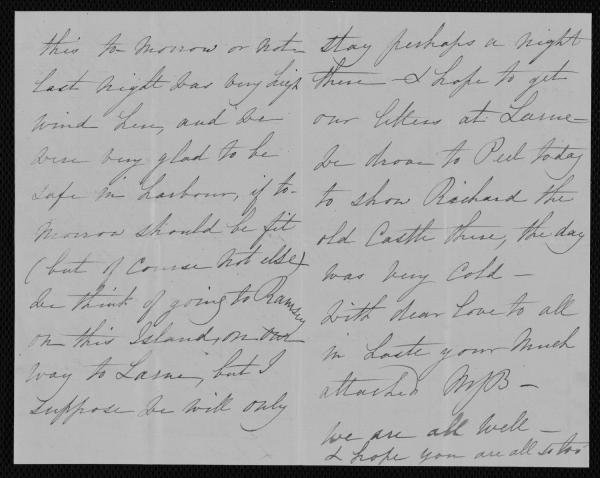 this to-morrow or not -
last night was very high
wind here, and we
were very glad to be
safe in harbour, if to-
morrow should be fit
(but of course not else)
we think of going to Ramsey
on this Island, on our
way to Larne, but I
suppose we will only
stay perhaps a night
there - I hope to get
our letters at Larne -
we drove to Peel today
to show Richard the
old Castle there, the day
was very cold -
With dear love to all
in haste your much
attached MJB -
we are all well -
I hope you are all so too